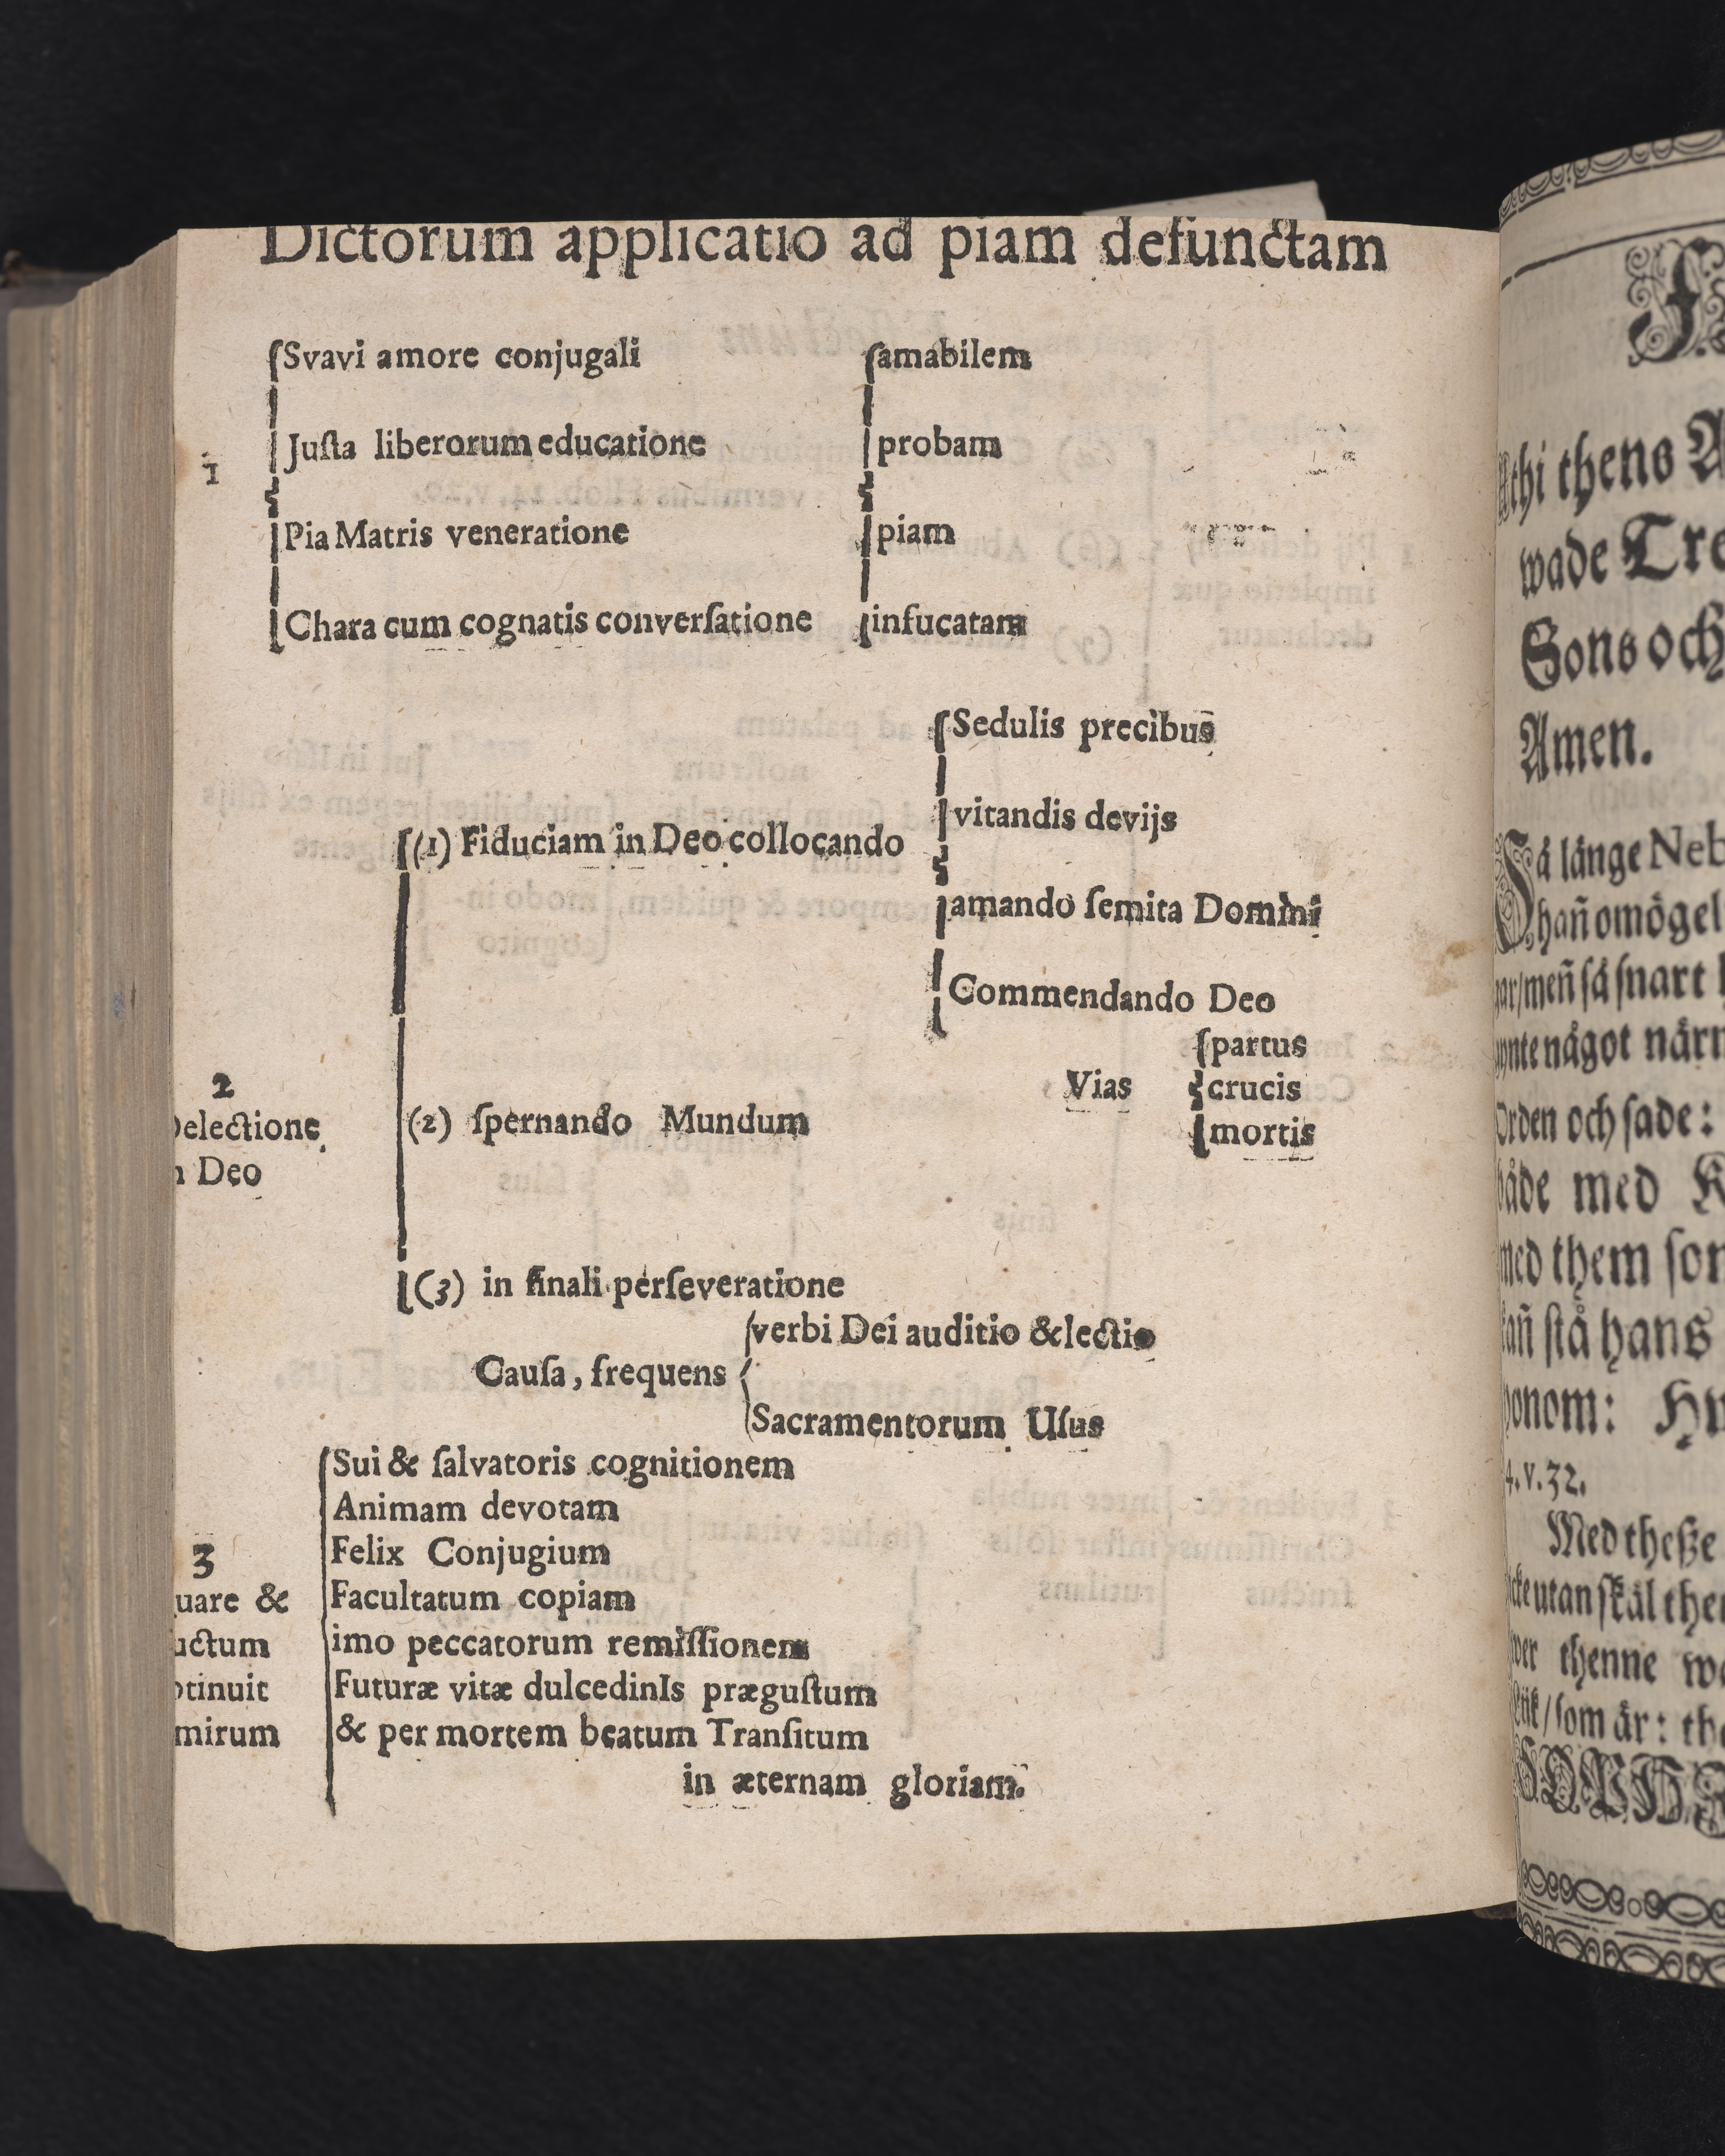 Dictorum applicatio ad piam defunctam
Svavi amore conjugali amabilem
1
Juſta liberorum educatione probam
Pia Matris veneratione piam
Chara cum cognatis converſatione infucatam
Sedulis precibus
vitandis devijs
(1) Fiduciam in Deo collocando
amando ſemita Domini
Commendando Deo
partus
Vias crucis
mortis
2
Delectione
(2) ſpernando Mundum
n Deo
(3) in finali perſeveratione
verbi Dei auditio & lectio
Cauſa, frequens
Sacramentorum Uſus
Sui & ſalvatoris cognitionem
Animam devotam
3
Felix Conjugium
uare & Facultatum copiam
uctum imo peccatorum remiſſionem
otinuit Futuræ vitæ dulcedinIs præguſtum
mirum & per mortem beatum Tranſitum
in æternam gloriam.
thi thens A
wade Tre
Sons och
Amen.
Så länge Neb
hañ omögel
gar/meñ ſå ſnart
ynte något närm
Orden och ſade:
både med K
med them ſom
kañ ſtå hans
honom:
4. v. 32.
Med theſze
icke utan ſkäl the
wer thenne
Lijk/ſom är: th